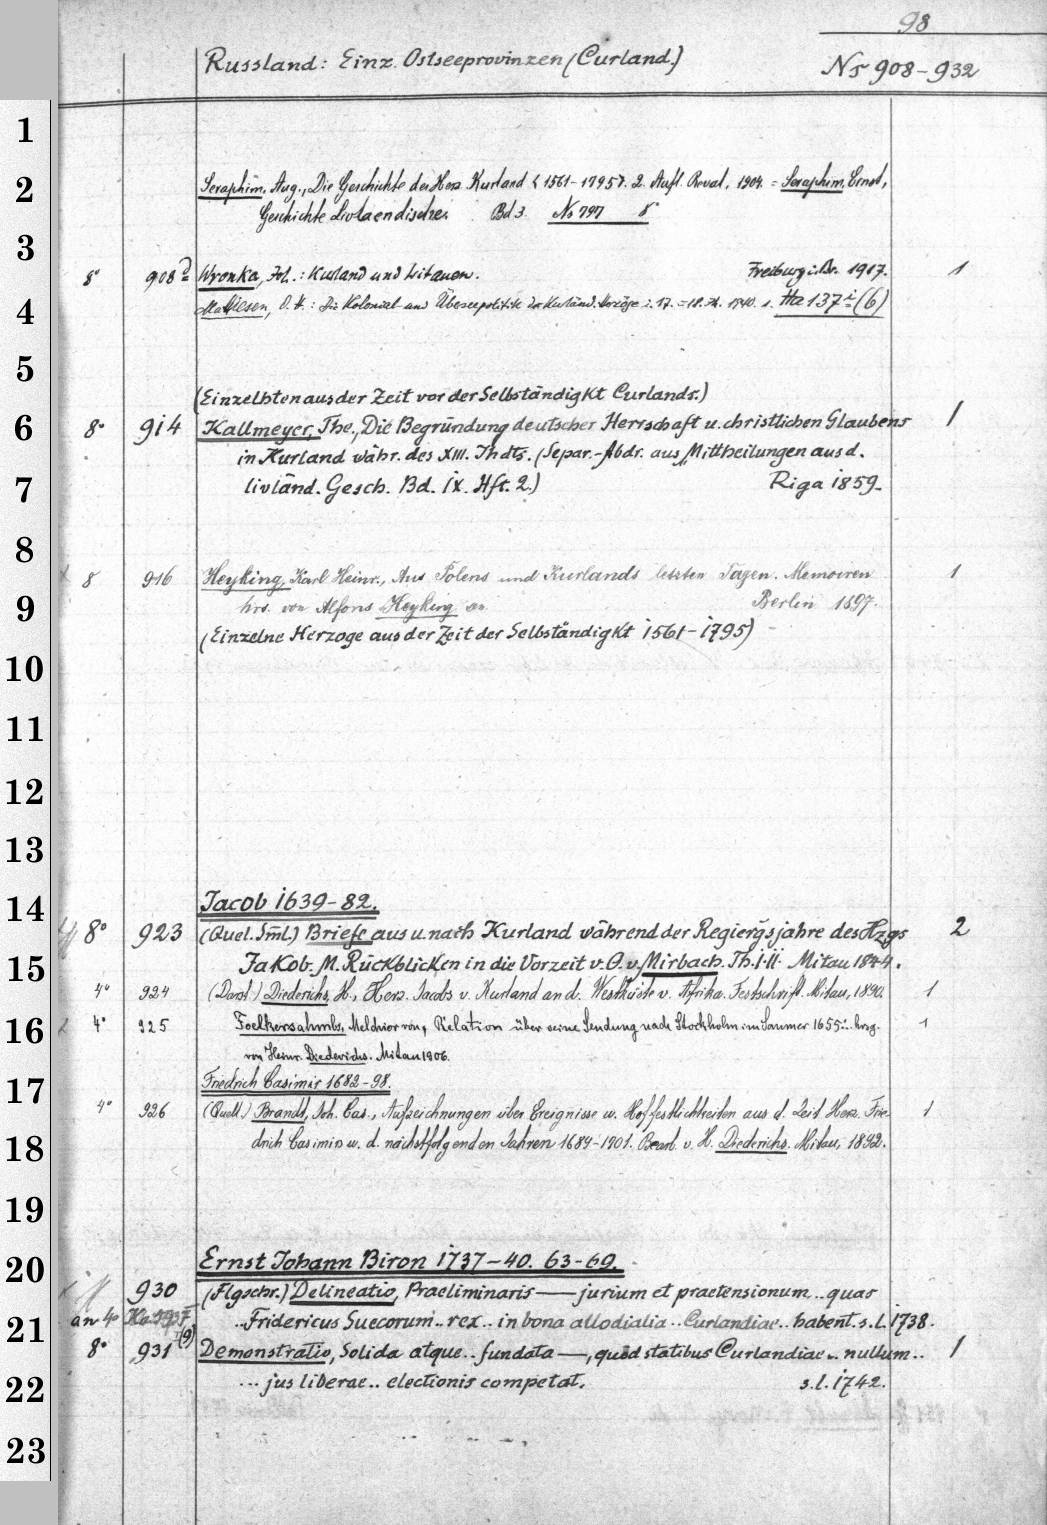 98
Russland: Einz. Ostseeprovinzen (Curland.)
Nr 908-932
1
2
Seraphim, Aug., Die Geschichte des Herz. Kurland < 1561-1795 >. 2. Aufl. Reval, 1904. = Seraphim, Ernst,
Geschichte Livlaendische. Bd 3. No 797 8°
3
8° 908 Wronka, Joh.: Kurland und Litauen. Freiburg i. Br. 1917. 1
4
O. H.: Die Kolonial und Überseepolitik der Kurländ. Herzöge i. 17. u. 18. Jh. 1940. s. Ha 137 i (6)
5
(Einzelhten aus der Zeit vor der Selbständigkt Curlands.)
6
8° 914 Kallmeyer, The., Die Begründung deutscher Herrschaft u. christlichen Glaubens 1
in Kurland währ. des XIII. Jhdts. (Separ.-Abdr. aus „Mittheilungen aus d.
7
livländ. Gesch. Bd. IX. Hft. 2.) Riga 1859.
8
8 916 Heyking, Karl Heinr., Aus Polens und Kurlands letzten Tagen. Memoiren 1
9
hrs. von Alfons Heyking Berlin 1897.
(Einzelne Herzoge aus der Zeit der Selbständigkt 1561-1795)
10
11
12
13
14
Jacob 1639-82.
8° 923 (Quel. Sml.) Briefe aus u. nach Kurland während der Regiergsjahre des Hzgs 2
15
Jakob. M. Rückblicken in die Vorzeit v. O. v. Mirbach. Th. I. II. Mitau 1844.
4° 924 (Darst.) Diederichs, H., Herz. Jacobs v. Kurland an d. Westküste v. Afrika. Festschrift. Mitau, 1890. 1
16
4° 925 Foelkersahmb, Melchior von, Relation über seine Sendung nach Stockholm im Sommer 1655. hrsg. 1
von Heinr. Diederichs. Mitau 1906.
17
Friedrich Casimir 1682-98.
4° 926 (Quell.) Brandt, Joh. Cas., Aufzeichnungen über Ereignisse u. Hoffestlichkeiten aus d. Zeit Herz. Frie- 1
18
drich Casimirs u. d. nächstfolgenden Jahren 1689-1701. Bearb. v. H. Diederichs. Mitau, 1892.
19
20
Ernst Johann Biron 1737-40. 63-69.
930 (Flgschr.) Delineatio, Praeliminaris — jurium et praetensionum .. quas
21
an 4° .. Fridericus Suecorum .. rex .. in bona allodialia .. Curlandiae .. habent. s. l. 1738.
8° 931 Demonstratio, Solida atque .. fundata —, quod statibus Curlandiae .. nullum .. 1
22
... jus liberae .. electionis competat. s. l. 1742.
23